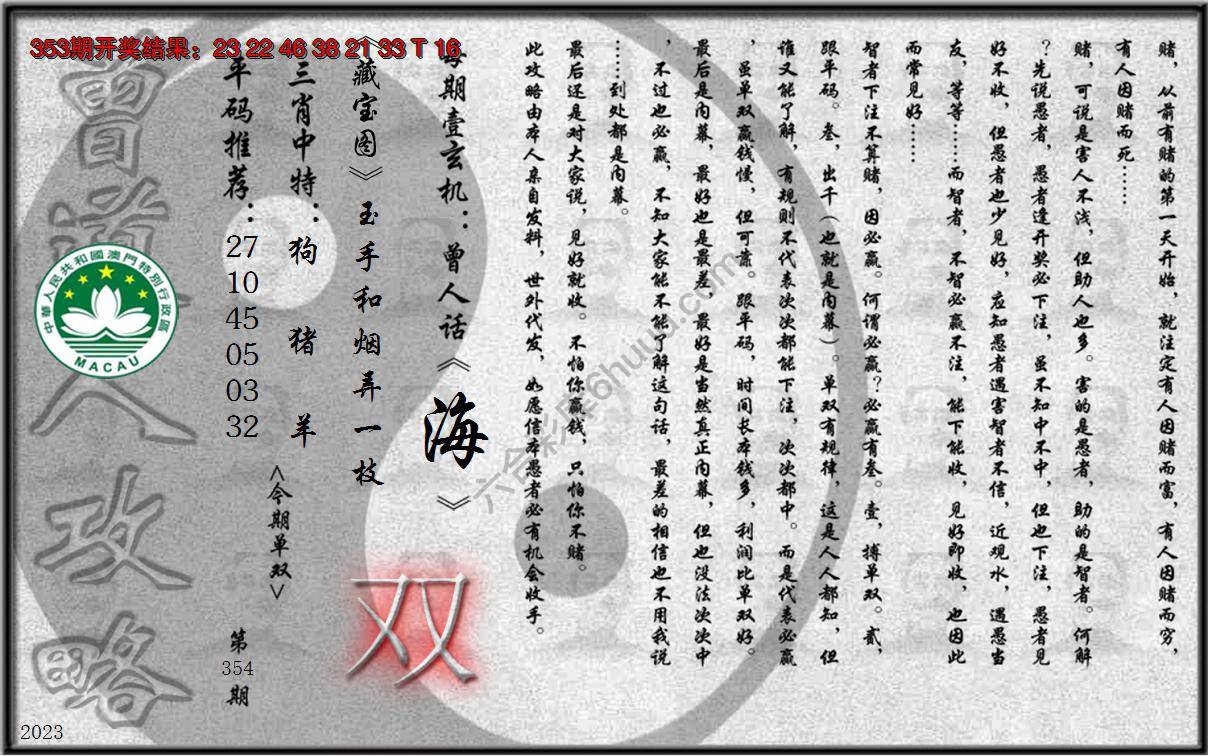 353期开奖结果：23 22 46 38 21 33 T 16
赌，从前有赌的第一天开始，就注定有人因赌而富，有人因赌而穷，
有人因赌而死……
赌，可说是害人不浅，但助人也多。害的是愚者，助的是智者。何解
？先说愚者，愚者逢开奖必下注，虽不知中不中，但也下注，愚者见
好不收，但愚者也少见好，应知愚者遇害智者不信，近观水，遇愚当
友，等等……而智者，不智必赢不注，能下能收，见好即收，也因此
而常见好……
智者下注不算赌，因必赢。何谓必赢？必赢有叁。壹，搏单双。贰，
跟平码。叁，出千（也就是内幕）。单双有规律，这是人人都知，但
谁又能了解，有规则不代表次次都能下注，次次都中。而是代表必赢
，虽单双赢钱慢，但可靠。跟平码，时间长本钱多，利润比单双好。
最后是内幕，最好也是最差，最好是当然真正内幕，但也没法次次中
，不过也必赢，不知大家能不能了解这句话，最差的相信也不用我说
……到处都是内幕。
最后还是对大家说，见好就收。不怕你赢钱，只怕你不赌。
此攻略由本人亲自发料，世外代发，如愿信本愚者必有机会收手。
每期壹玄机：曾人话《海》
《藏宝图》玉手和烟弄一枝
双
三肖中特：狗 猪 羊
<今期单双>
平码推荐：27 10 45 05 03 32
第354期
曾道人攻略
中華人民共和國澳門特別行政區
MACAU
六合彩库6huuu.com
2023